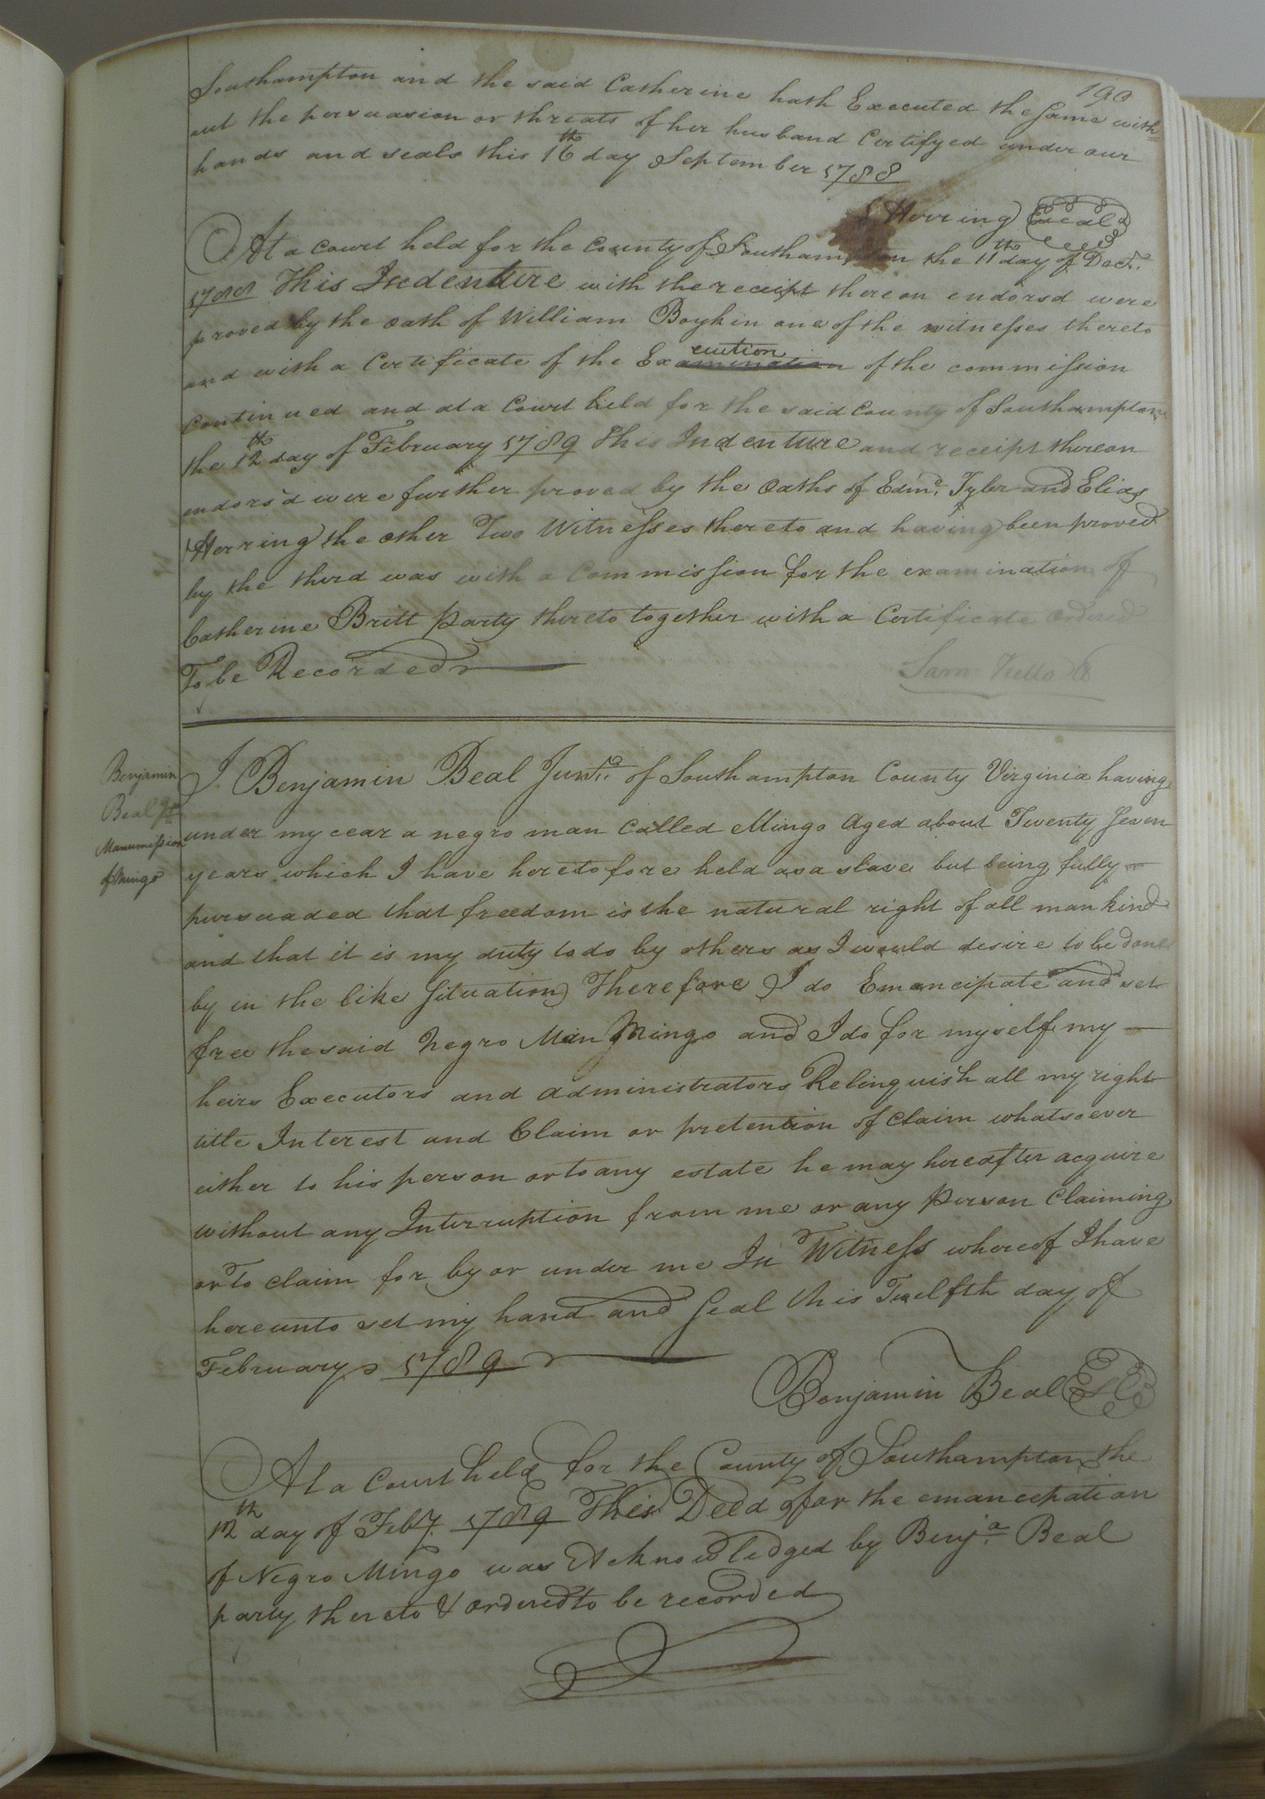 190
Southampton and the said Catherine hath Executed the Same with=
out the persuasion or threats of her husband Certifyed under our
hands and seals this 16th day September 1788
Herring Seal
At a Court held for the County of Southampton the 11th day of Decr.
1788 This Indenture with the receipt thereon endorsd were
proved by the oath of William Boykin one of the witnesses thereto
and with a Certificate of the Examination cution of the commission
Continued and at a Court held for the said County of Southampton
the 12th day of February 1789 This Indenture and receipt thereon
endors'd were further proved by the Oaths of Edmd. Tyler and Elias
Herring the other Two Witnesses thereto and having been proved
by the third was with a Commission for the examination of
Catherine Britt Party thereto together with a Certificate ordered
To be Recorded
Sam Kello
Benjamin
Beal Jr
Manumission
of Mingo
I Benjamin Beal Junr. of Southampton County Virginia having
under my cear a negro man Called Mingo Aged about Twenty Seven
years which I have heretofore held as a slave but being fully
pursuaded that freedom is the natural right of all mankind
and that it is my duty to do by others as I would desire to be done
by in the like Situation Therefore I do Emancipate and set
free the said Negro Man Mingo and I do for myself my
heirs Executors and administrators Relinquish all my right
title Interest and Claim or pretention of Claim whatsoever
either to his person or to any estate he may hereafter acquire
without any Interruption from me or any Person Claiming
or To claim for by or under me In Witness whereof I have
hereunto set my hand and Seal this Twelfth day of
February 1789
Benjamin Beal
At a Court held for the County of Southampton the
12th day of Feby 1789 This Deed for the emancepation
of Negro Mingo was Acknowledged by Benja. Beal
party thereto & ordered to be recorded